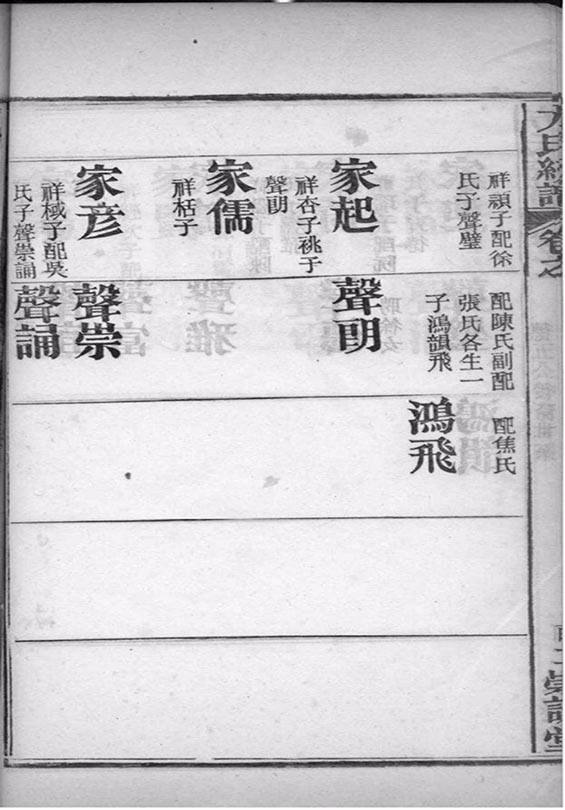 卷之
祥頴子配徐
氏子聲璧
家起
祥杏子祧子
聲眀
家儒
祥栝子
家彥
祥棫子配吳
氏子聲崇誦
配陳氏副配
張氏各生一
子鴻韻飛
聲眀
聲崇
聲誦
配焦氏
鴻飛